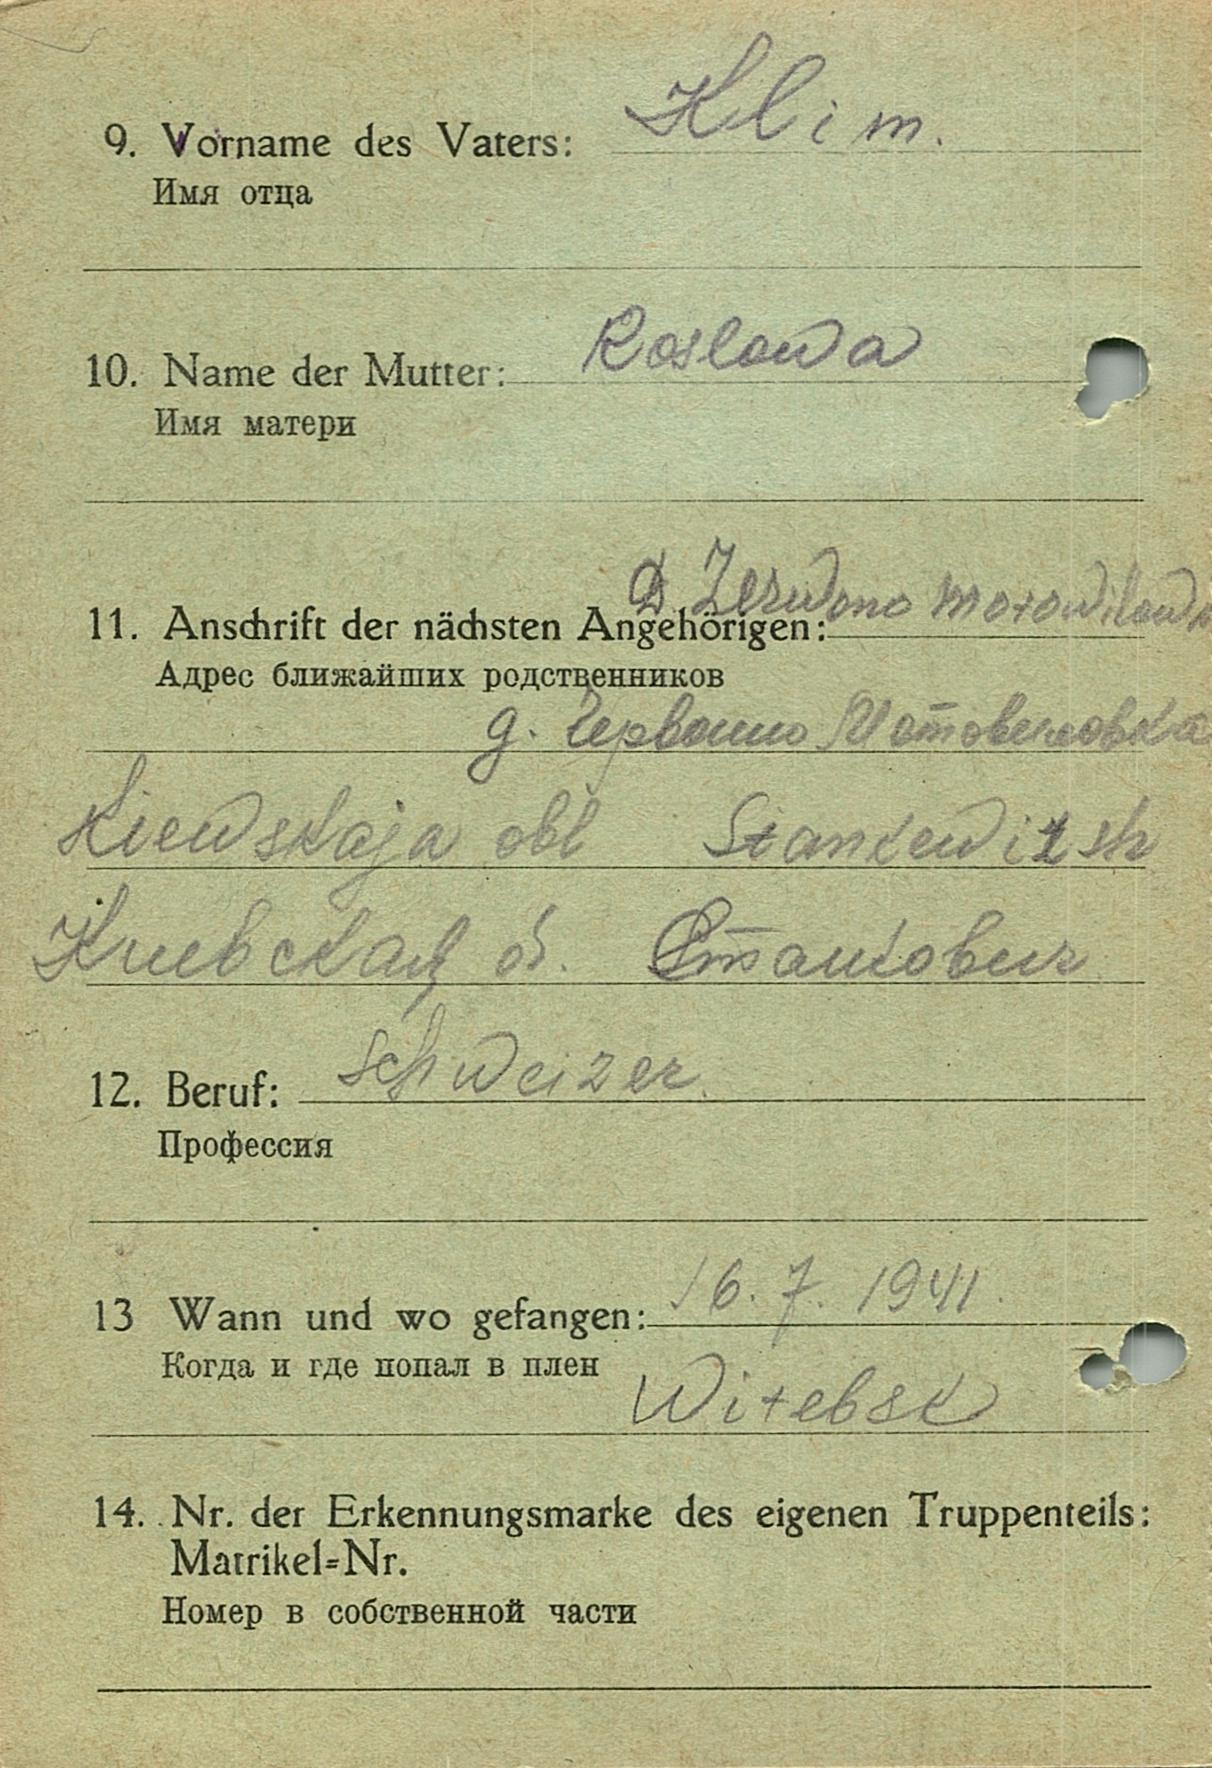 9. Vorname des Vaters: Klim.
Имя отца
10. Name der Mutter: Koslowa
Имя матери
D Zerwono Motowilowka
11. Anschrift der nächsten Angehörigen:
Адрес ближайших родственников
д. Червонно Мотовиловка
Kiewskaja obl Stankewitsh
Киевская о. Станкович
12. Beruf: Schweizer.
Профессия
13 Wann und wo gefangen: 16. 7. 1941.
Когда и где попал в плен
Witebsk
14. Nr. der Erkennungsmarke des eigenen Truppenteils:
Matrikel=Nr.
Номер в собственной части